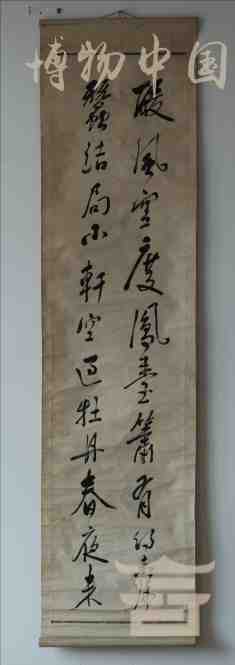 博物中国
風度鳳臺簫有
結局小軒空過牡丹春夜來